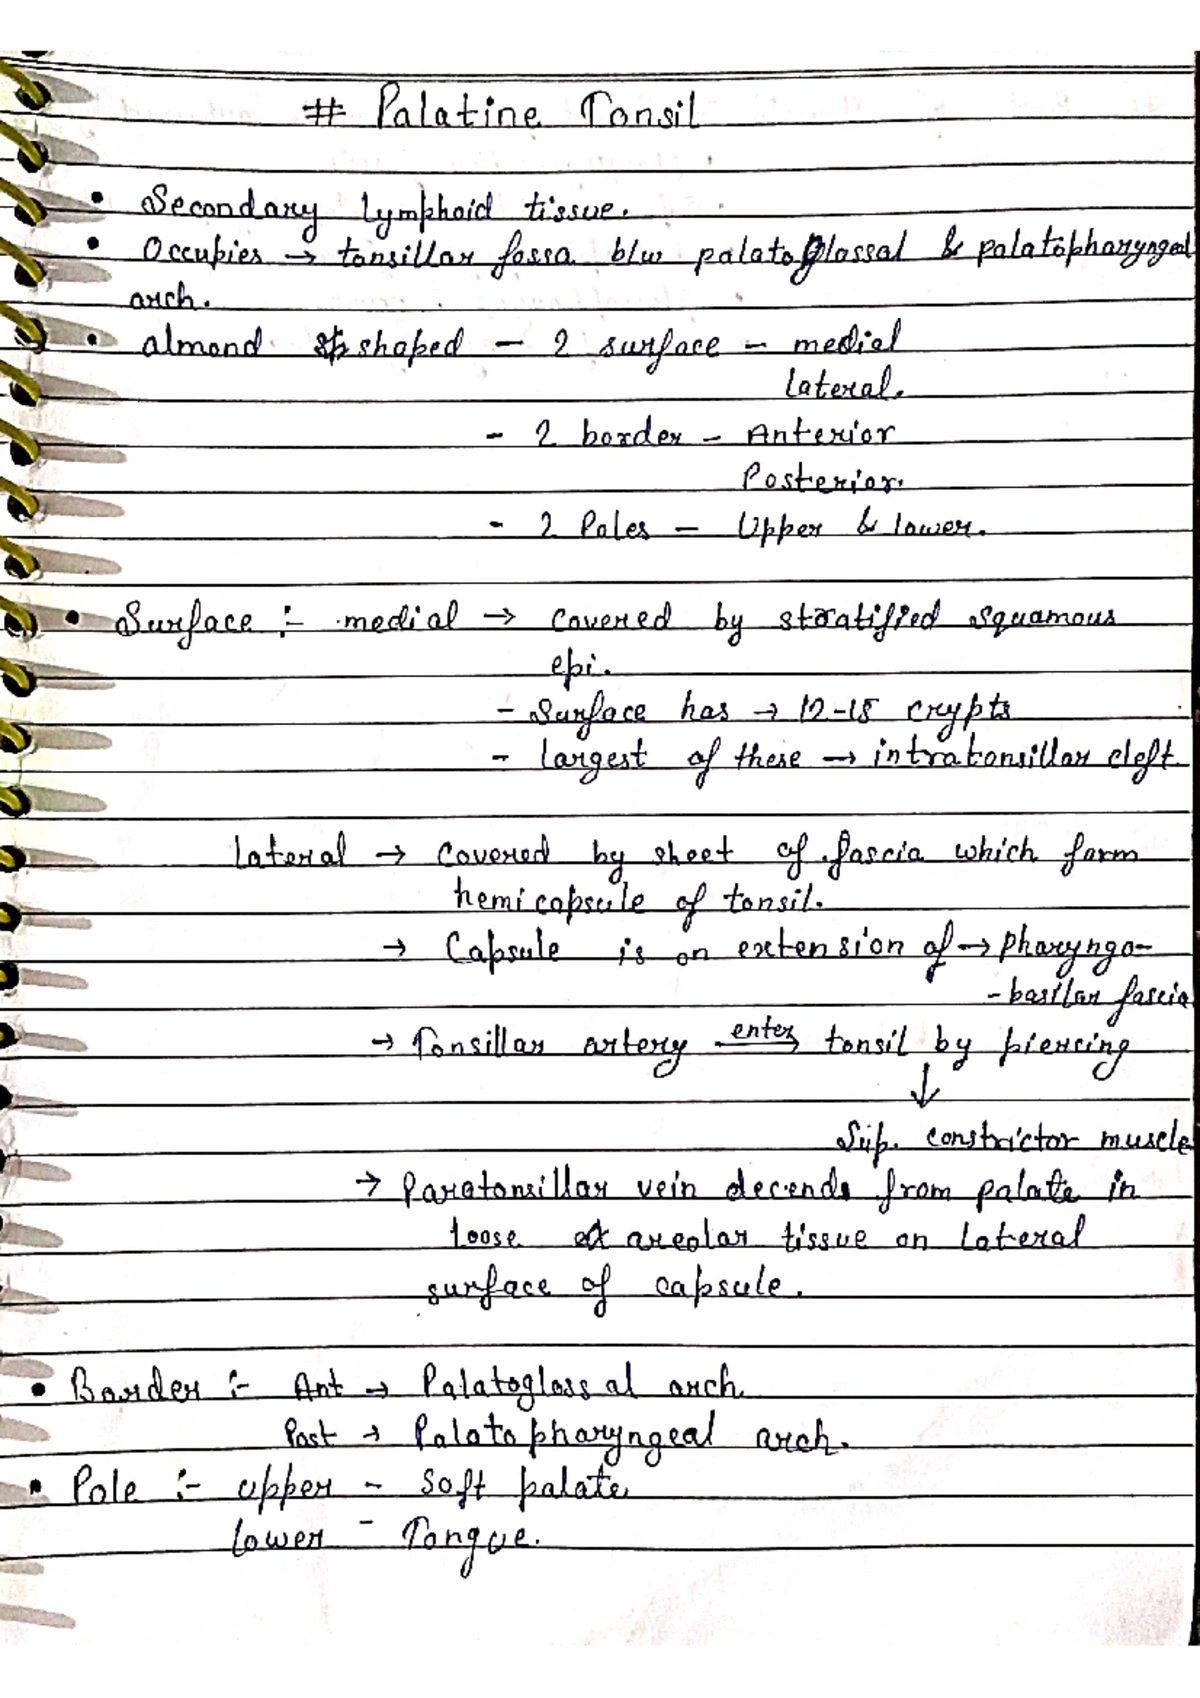 # Palatine Tonsil
• Secondary lymphoid tissue.
• Occupies → tonsillar fossa b/w palatoglossal & palatopharyngeal
arch.
• almond shaped – 2 surface – medial
lateral.
- 2 border – Anterior
Posterior.
- 2 Poles – Upper & lower.
• Surface :- medial → covered by stratified squamous
epi.
- Surface has → 12-15 crypts
- largest of these → intratonsillar cleft
lateral → covered by sheet of fascia which form
hemicapsule of tonsil.
→ Capsule is an extension of → pharyngo-
-basilar fascia
→ Tonsillar artery enter→ tonsil by piercing
↓
Sup. constrictor muscle
→ Paratonsillar vein decends from palate in
loose areolar tissue on lateral
surface of capsule.
• Border :- Ant → Palatoglossal arch
Post → Palatopharyngeal arch.
• Pole :- upper – soft palate
lower – Tongue.